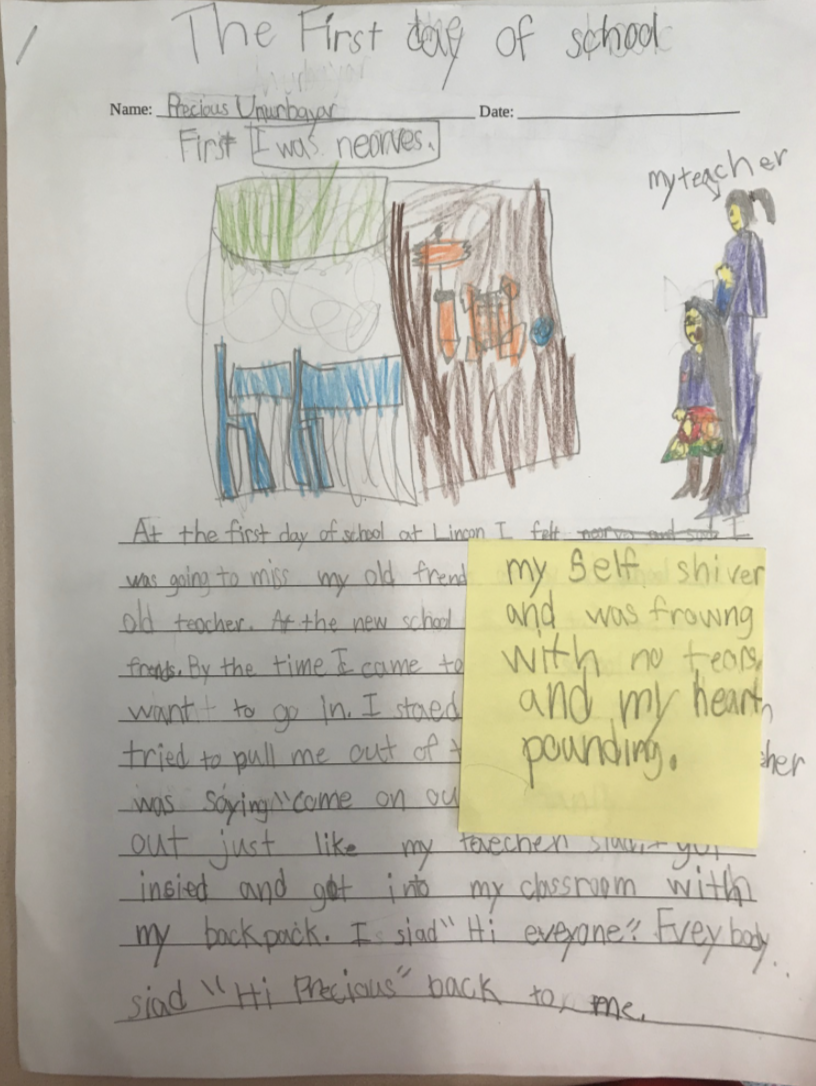 The First day of school
Name: Precious Ununbayar
Date:
First I was neorves.
my teacher
At the first day of school at Lincon I felt I
was going to miss my old frend
old teacher. At the new school
frends. By the time I came to
want to go in. I staed
tried to pull me out of
cher
was saying "come on ou
out just like my
insied and got into my classroom with
my backpack. I siad "Hi eveyone". Evey body
siad "Hi Precious" back to me.
my self shiver
and was frowng
with no tears,
and my heart
pounding.